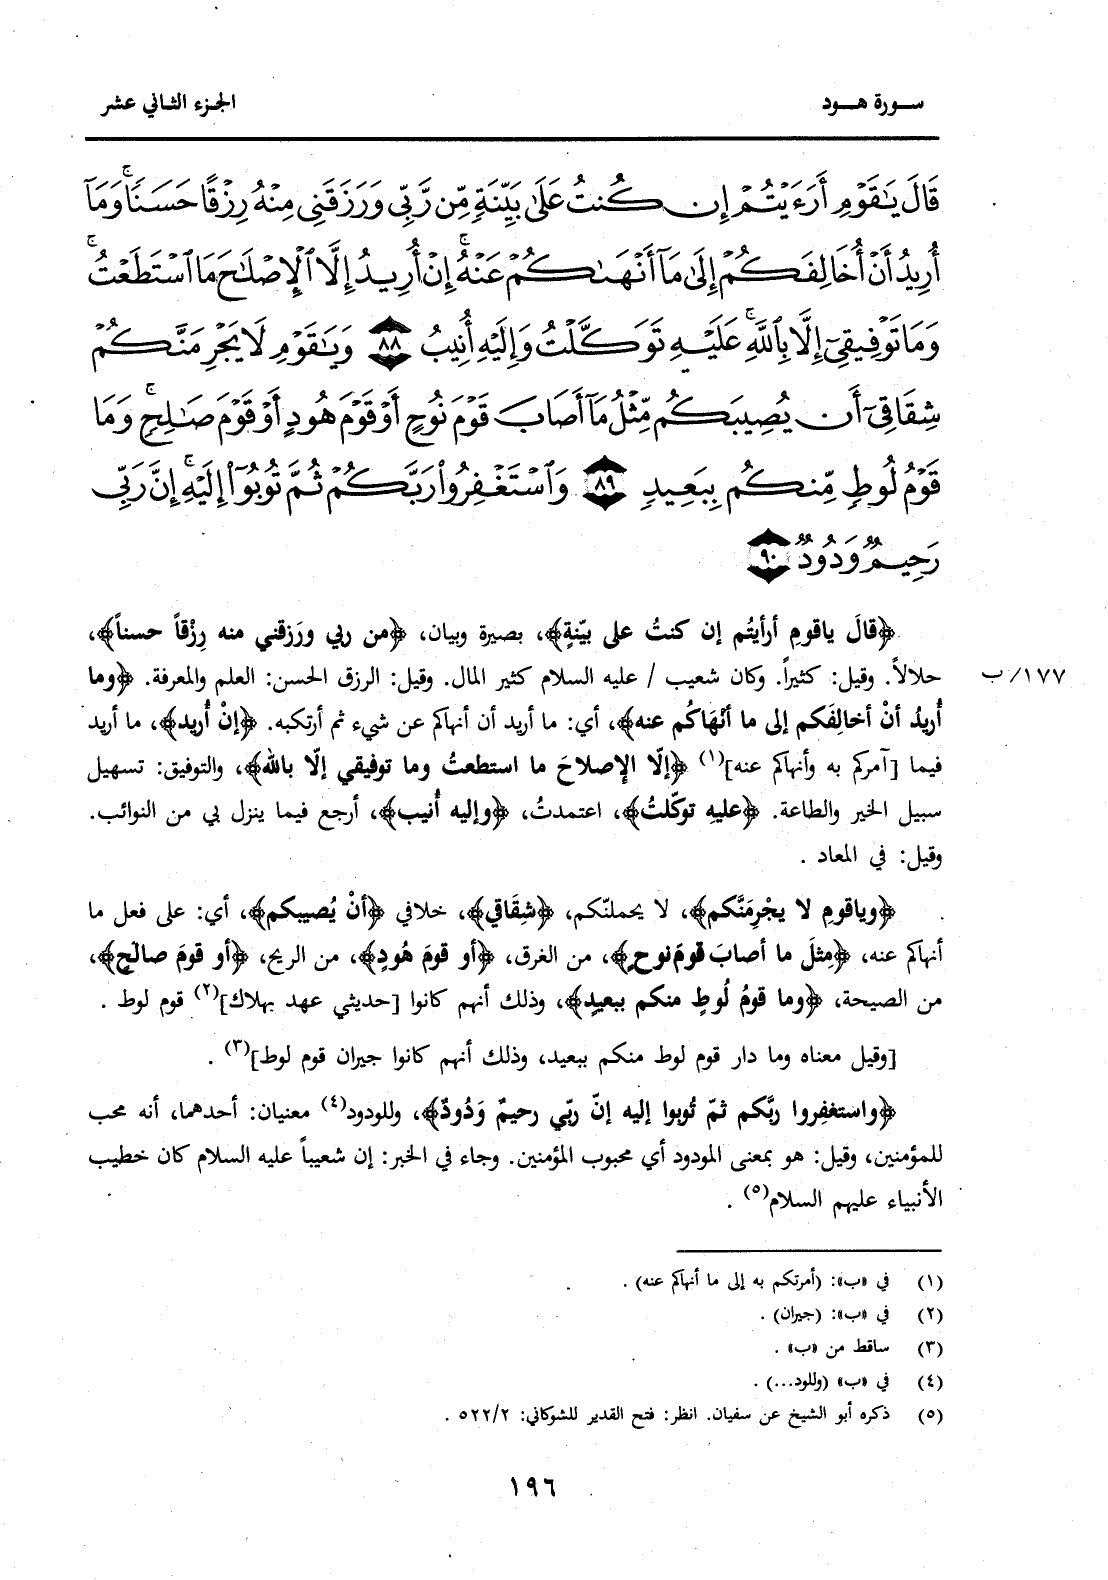 سورة هود
الجزء الثاني عشر
قَالَ يَٰقَوْمِ أَرَءَيْتُمْ إِن كُنتُ عَلَىٰ بَيِّنَةٍ مِّن رَّبِّى وَرَزَقَنِى مِنْهُ رِزْقًا حَسَنًا ۚ وَمَآ
أُرِيدُ أَنْ أُخَالِفَكُمْ إِلَىٰ مَآ أَنْهَىٰكُمْ عَنْهُ ۚ إِنْ أُرِيدُ إِلَّا ٱلْإِصْلَٰحَ مَا ٱسْتَطَعْتُ ۚ
وَمَا تَوْفِيقِىٓ إِلَّا بِٱللَّهِ ۚ عَلَيْهِ تَوَكَّلْتُ وَإِلَيْهِ أُنِيبُ ٨٨ وَيَٰقَوْمِ لَا يَجْرِمَنَّكُمْ
شِقَاقِىٓ أَن يُصِيبَكُم مِّثْلُ مَآ أَصَابَ قَوْمَ نُوحٍ أَوْ قَوْمَ هُودٍ أَوْ قَوْمَ صَٰلِحٍ ۚ وَمَا
قَوْمُ لُوطٍ مِّنكُم بِبَعِيدٍ ٨٩ وَٱسْتَغْفِرُوا۟ رَبَّكُمْ ثُمَّ تُوبُوٓا۟ إِلَيْهِ ۚ إِنَّ رَبِّى
رَحِيمٌ وَدُودٌ ٩٠
﴿قالَ ياقومِ أرأيتُم إن كنتُ على بيّنةٍ﴾، بصيرة وبيان، ﴿من ربي ورَزقني منه رِزْقاً حسناً﴾،
حلالاً. وقيل: كثيراً. وكان شعيب / عليه السلام كثير المال. وقيل: الرزق الحسن: العلم والمعرفة. ﴿وما
١٧٧/ ب
أُريدُ أنْ أخالِفَكم إلى ما أنْهَاكُم عنه﴾، أي: ما أريد أن أنهاكم عن شيء ثم أرتكبه. ﴿إنْ أُريد﴾، ما أريد
فيما [آمركم به وأنهاكم عنه](١) ﴿إلّا الإصلاحَ ما استطعتُ وما توفيقي إلّا بالله﴾، والتوفيق: تسهيل
سبيل الخير والطاعة. ﴿عليهِ توكّلتُ﴾، اعتمدتُ، ﴿وإليه أُنيب﴾، أرجع فيما ينزل بي من النوائب.
وقيل: في المعاد .
﴿وياقومِ لا يجْرِمَنَّكم﴾، لا يحملنّكم، ﴿شِقَاقي﴾، خلافي ﴿أنْ يُصيبكم﴾، أي: على فعل ما
أنهاكم عنه، ﴿مِثلَ ما أصابَ قومَ نوح﴾، من الغرق، ﴿أو قومَ هُودٍ﴾، من الريح، ﴿أو قومَ صالحٍ﴾،
من الصيحة، ﴿وما قومُ لُوطٍ منكم ببعيدٍ﴾، وذلك أنهم كانوا [حديثي عهد بهلاك](٢) قوم لوط .
[وقيل معناه وما دار قوم لوط منكم ببعيد، وذلك أنهم كانوا جيران قوم لوط](٣) .
﴿واستغفِروا ربَّكم ثمّ تُوبوا إليه إنّ ربّي رحيمٌ وَدُودٌ﴾، وللودود(٤) معنيان: أحدهما، أنه محب
للمؤمنين، وقيل: هو بمعنى المودود أي محبوب المؤمنين. وجاء في الخبر: إن شعيباً عليه السلام كان خطيب
الأنبياء عليهم السلام(٥) .
(١) في «ب»: (أمرتكم به إلى ما أنهاكم عنه) .
(٢) في «ب»: (جيران) .
(٣) ساقط من «ب» .
(٤) في «ب» (وللود...) .
(٥) ذكره أبو الشيخ عن سفيان. انظر: فتح القدير للشوكاني: ٥٢٢/٢ .
١٩٦